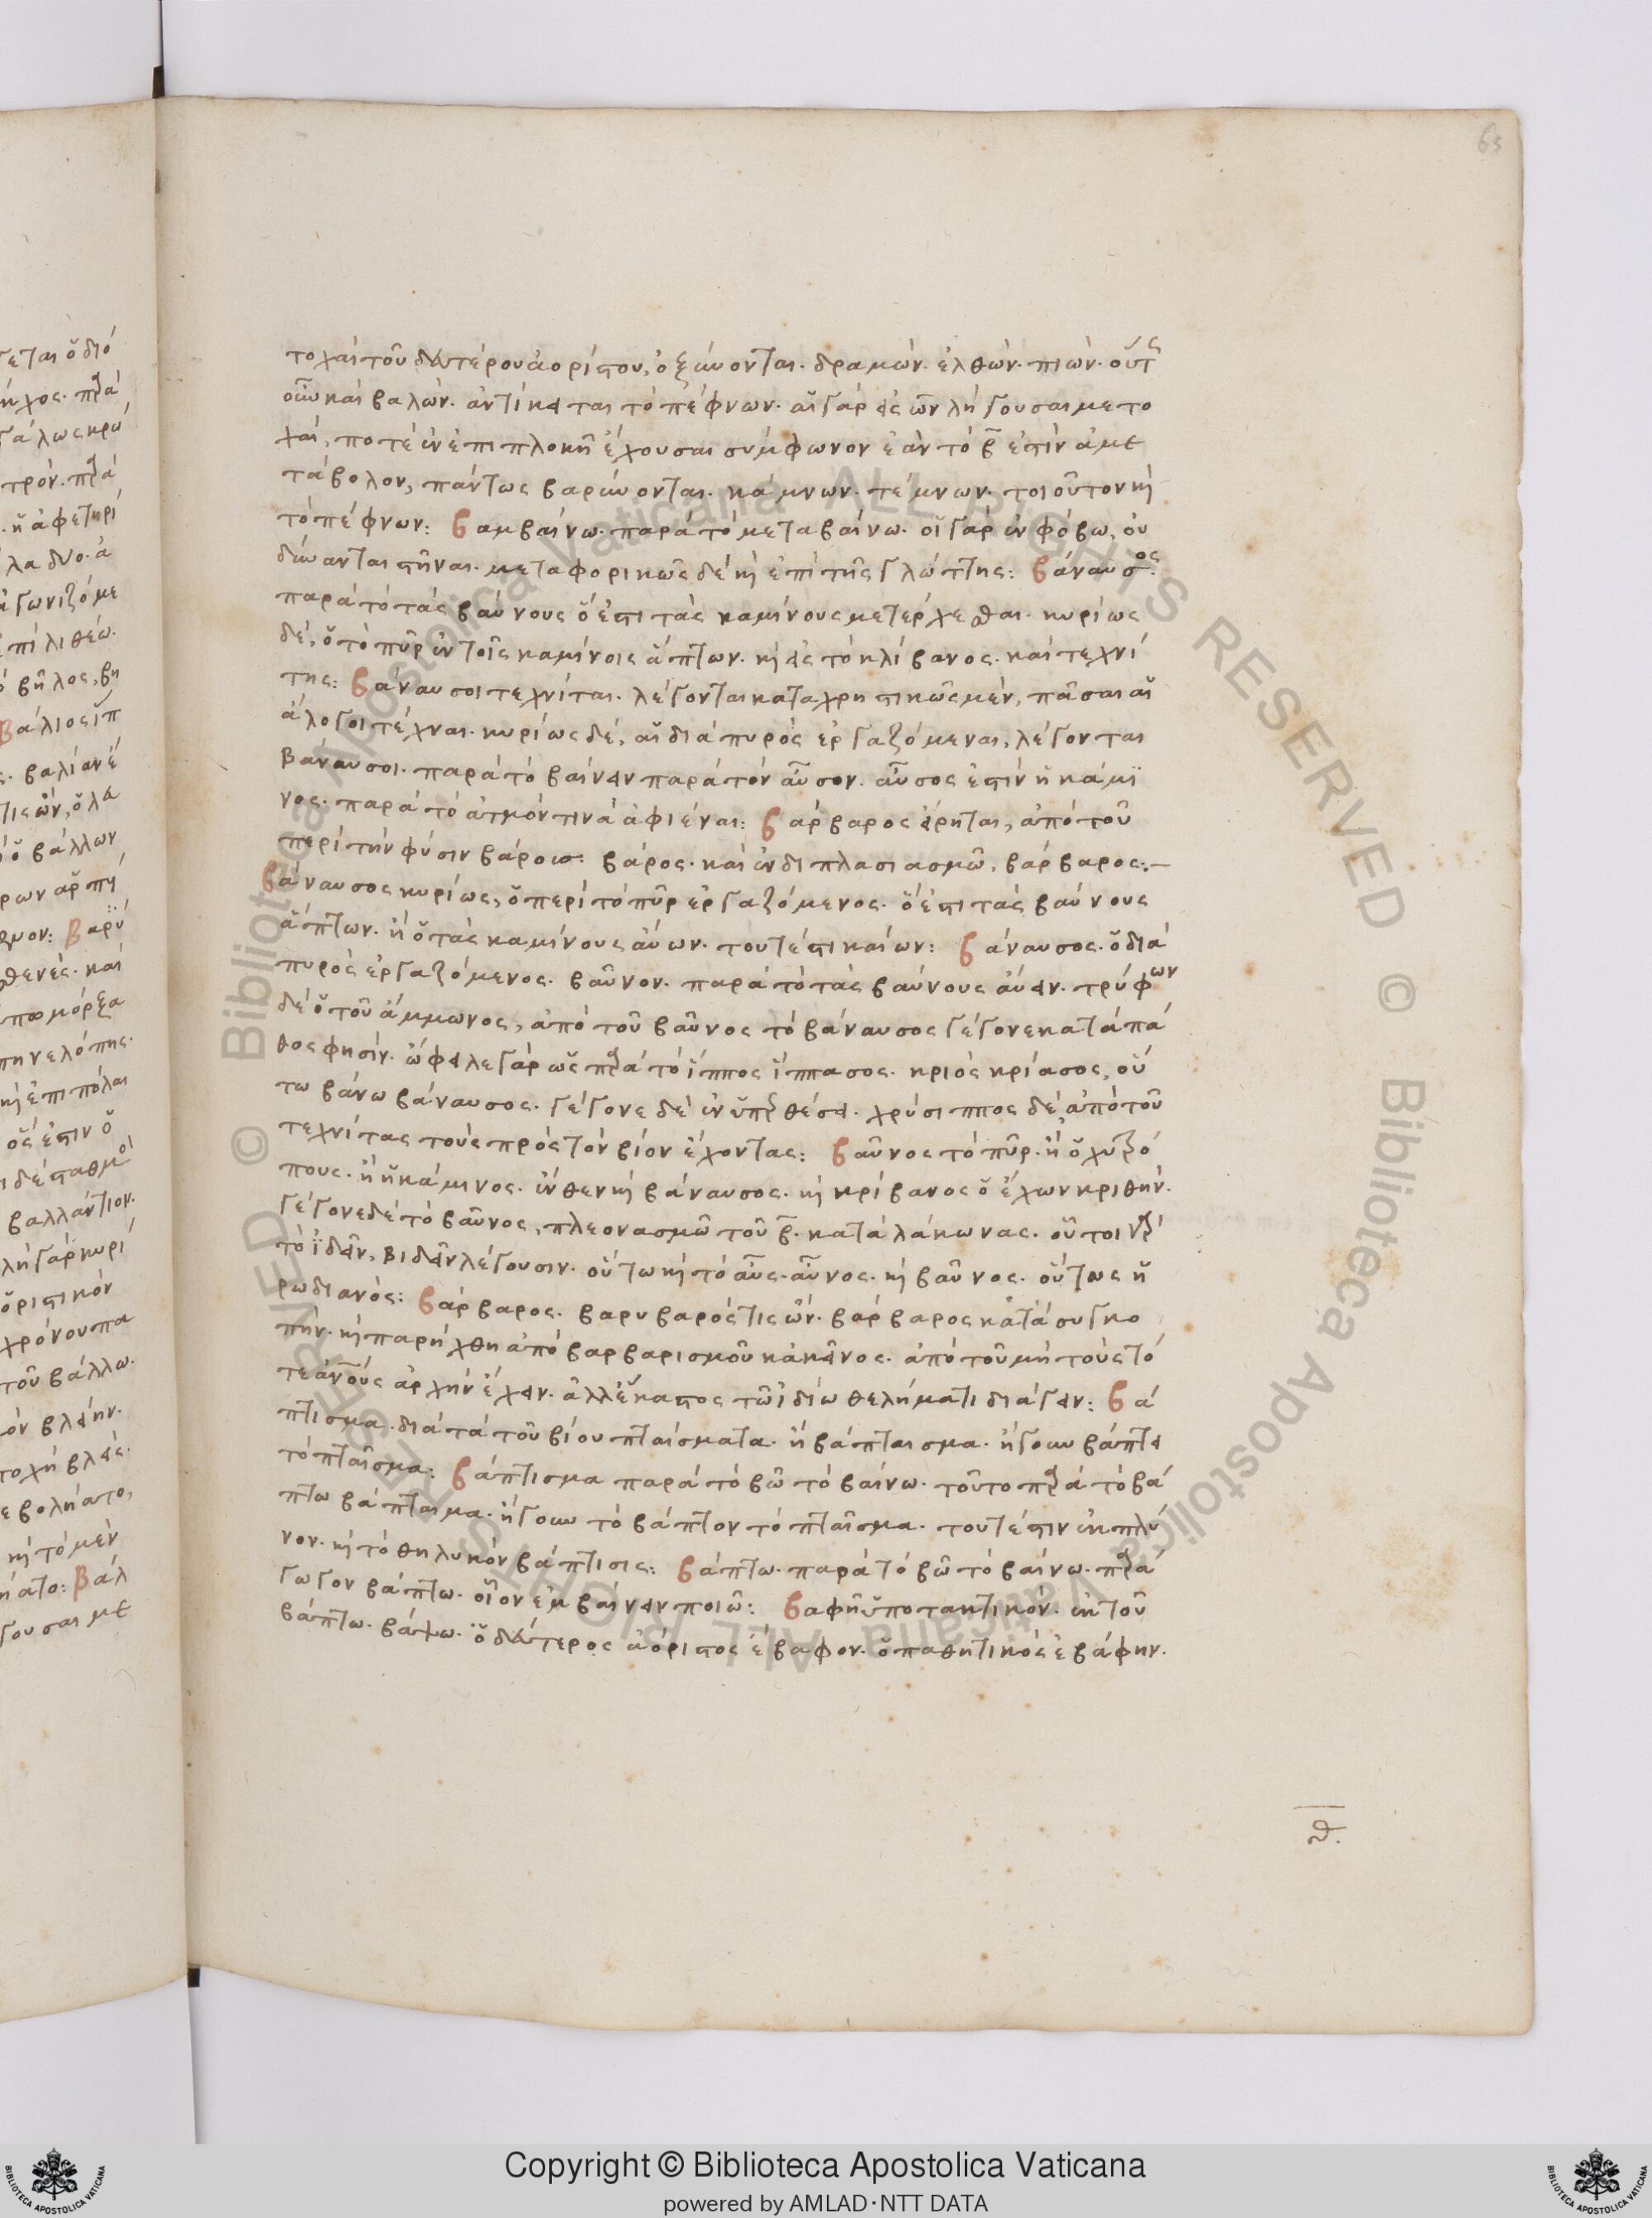 65
τοχαὶ τοῦ δευτέρου ἀορίστου, ὀξύνονται. δραμών. ἐλθών. πιών. οὕτως
οὖν καὶ βαλών. ἀντίκειται τὸ πέφνων. αἱ γὰρ εἰς ων λήγουσαι μετο
χαὶ, ποτὲ ἐν ἐπιπλοκῆ ἔχουσαι σύμφωνον ἐὰν τὸ β ἐστὶν ἀμε
τάβολον, πάντως βαρύνονται. κάμνων. τέμνων. τοιοῦτον καὶ
τὸ πέφνων: βαμβαίνω. παρὰ τὸ μεταβαίνω. οἱ γὰρ ἐν φόβω, οὐ
δύνανται στῆναι. μεταφορικῶς δὲ καὶ ἐπὶ τῆς γλώττης: βάναυσος.
παρὰ τὸ τὰς βαύνους ὅ ἐστι τὰς καμίνους μετέρχεσθαι. κυρίως
δὲ, ὁ τὸ πῦρ ἐν τοῖς καμίνοις ἅπτων. καὶ εἰς τὸ κλίβανος. καὶ τεχνί
της: βάναυσοι τεχνίται. λέγονται καταχρηστικῶς μὲν, πᾶσαι αἱ
ἄλογοι τέχναι. κυρίως δὲ, αἱ διὰ πυρὸς ἐργαζόμεναι, λέγονται
βάναυσοι. παρὰ τὸ βαίνειν παρὰ τὸν αὖσον. αὖσος ἐστὶν ἡ κάμι
νος. παρὰ τὸ ἀτμόν τινα ἀφιέναι: βάρβαρος εἴρηται, ἀπὸ τοῦ
περὶ τὴν φύσιν βάρους: βάρος. καὶ ἐν διπλασιασμῶ, βάρβαρος:–
βάναυσος κυρίως, ὁ περὶ τὸ πῦρ ἐργαζόμενος. ὅ ἐστι τὰς βαύνους
ἅπτων. ἢ ὁ τὰς καμίνους αὔων. τουτέστι καίων: βάναυσος. ὁ διὰ
πυρὸς ἐργαζόμενος. βαῦνον. παρὰ τὸ τὰς βαύνους αὔειν. τρύφων
δὲ ὁ τοῦ ἄμμωνος, ἀπὸ τοῦ βαῦνος τὸ βάναυσος γέγονε κατὰ πά
θος φησίν. ὤφειλε γὰρ ὡς παρὰ τὸ ἵππος ἵππασος. κριὸς κρίασος, οὕ
τω βάνω βάναυσος. γέγονε δὲ ἐν ὑπερθέσει. χρύσιππος δὲ, ἀπὸ τοῦ
τεχνίτας τοὺς πρὸς τὸν βίον ἔχοντας: βαῦνος τὸ πῦρ. ἢ ὁ χυτρό
πους. ἢ ἡ κάμινος. ἔνθεν καὶ βάναυσος. καὶ κρίβανος ὁ ἔχων κριθήν.
γέγονε δὲ τὸ βαῦνος, πλεονασμῶ τοῦ β. κατὰ λάκωνας. οὗτοι γὰρ
τὸ ἰδεῖν, βιδεῖν λέγουσιν. οὕτω καὶ τὸ αὖς. αὖνος. καὶ βαῦνος. οὕτως ἡ
ρωδιανός: βάρβαρος. βαρυβαρός τις ὤν. βάρβαρος κατὰ συγκο
πήν. καὶ παρήχθη ἀπὸ βαρβαρισμοῦ κἀκεῖνος. ἀπὸ τοῦ μὴ τοὺς τό
τε ἀνους ἀρχὴν ἔχειν. ἀλλ' ἕκαστος τῶ ἰδίω θελήματι διάγειν: βά
πτισμα. διὰ τὰ τοῦ βίου πταίσματα. ἢ βάπταισμα. ἤγουν βάπτει
τὸ πταῖσμα: βάπτισμα παρὰ τὸ βῶ τὸ βαίνω. τοῦτο παρὰ τὸ βά
πτω βάπταισμα. ἤγουν τὸ βάπτον τὸ πταῖσμα. τουτέστιν ἐκπλύ
νον. καὶ τὸ θηλυκὸν βάπτισις: βάπτω. παρὰ τὸ βῶ τὸ βαίνω. παρά
γωγον βάπτω. οἷον ἐμβαίνειν ποιῶ: βαφῆ ὑποτακτικόν. ἐκ τοῦ
βάπτω. βάψω. ὁ δεύτερος ἀόριστος ἔβαφον. ὁ παθητικὸς ἐβάφην.
θ.
Copyright © Biblioteca Apostolica Vaticana
powered by AMLAD·NTT DATA